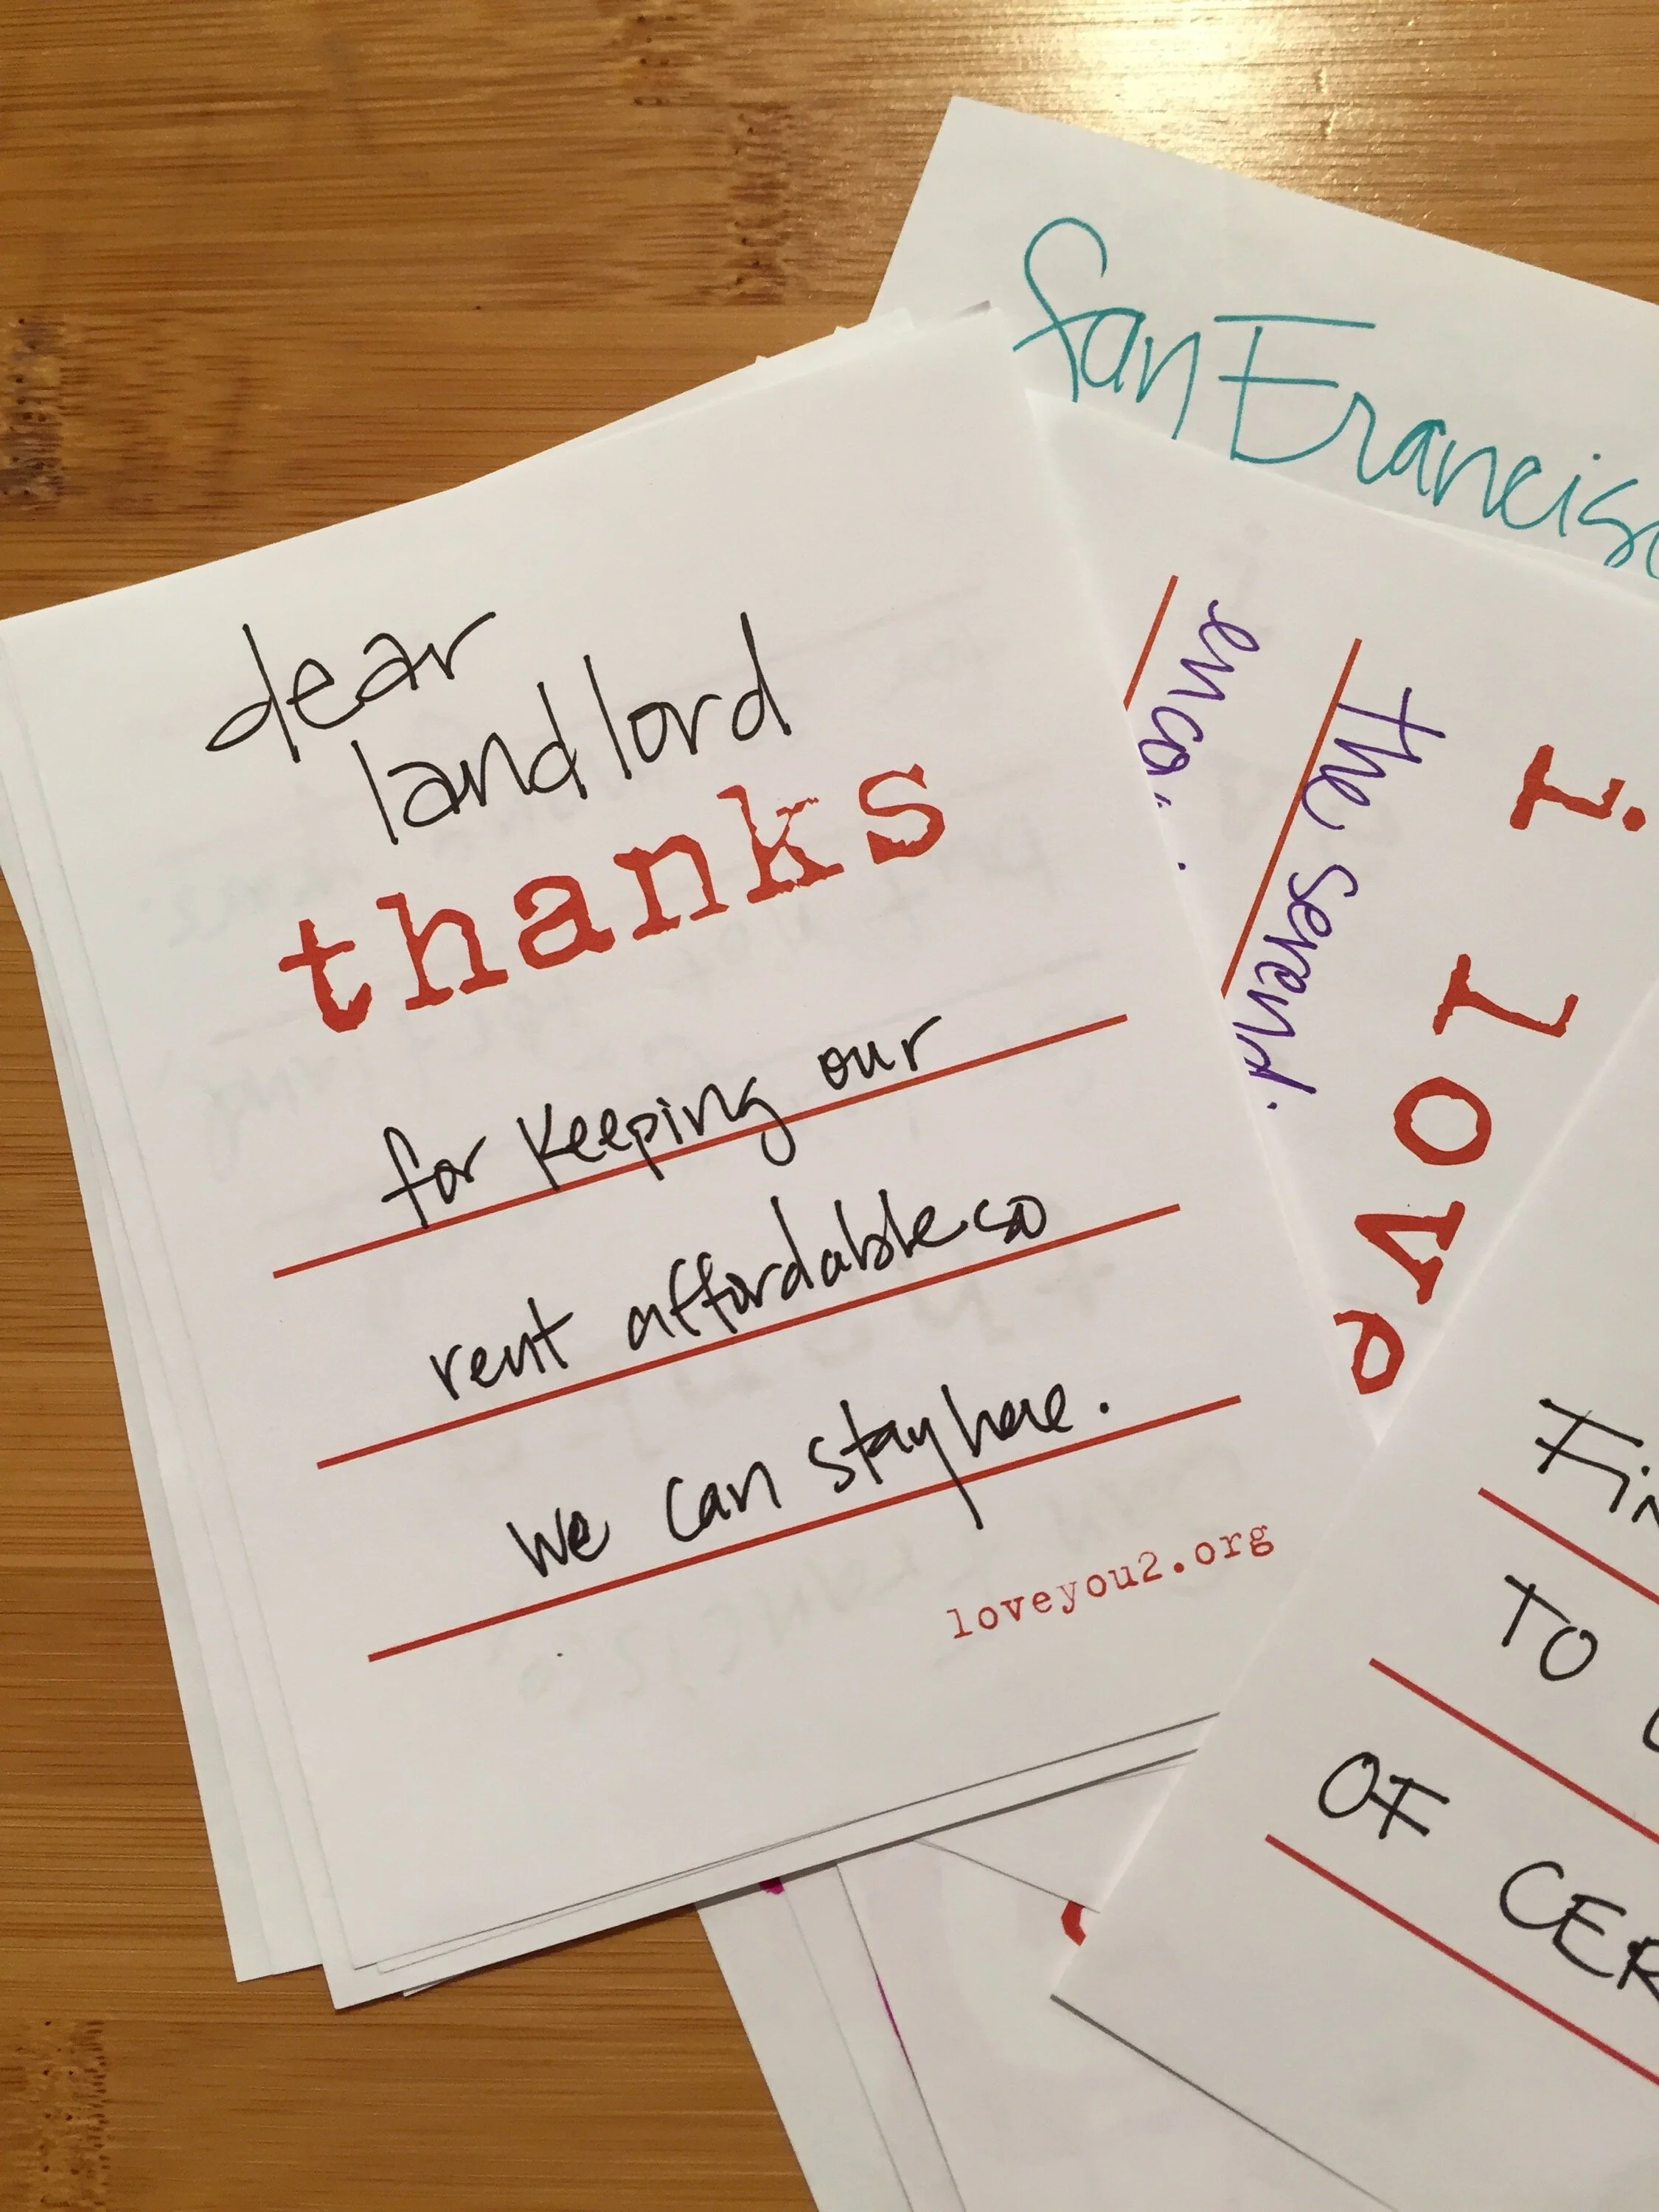 dear
landlord
thanks
for keeping our
rent affordable so
we can stay here.
loveyou2.org
San
i love
the
TO
OF